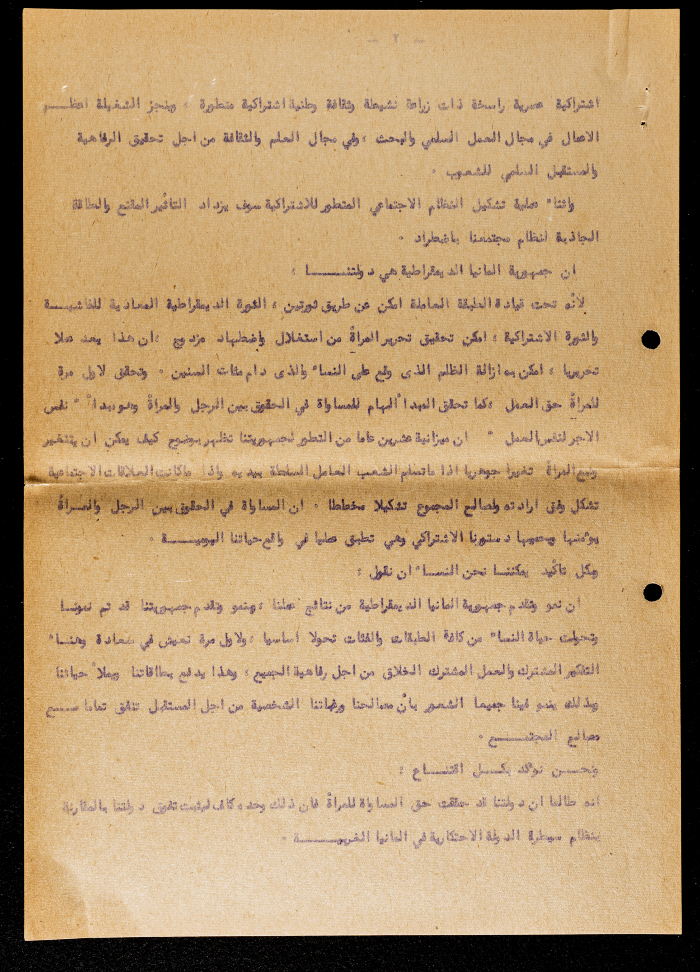 — ٢ —
اشتراكية عصرية راسخة ذات زراعة نشيطة وثقافة وطنية اشتراكية متطورة ، وينجز الشغيلة اعظــم
الاعمال في مجال العمل السلمي والبحث ،وفي مجال العلم والثقافة من اجل تحقيق الرفاهية
والمستقبل السلمي للشعوب ٠
واثناء عملية تشكيل النظام الاجتماعي المتطور للاشتراكية سوف يزداد التأثير المقنع والطاقة
الجاذبة لنظام مجتمعنا باضطراد ٠
ان جمهورية المانيا الديمقراطية هي دولتنـــــا ،
لأنه تحت قيادة الطبقة العاملة امكن عن طريق ثورتين ، الثورة الديمقراطية المعادية للفاشيـــة
والثورة الاشتراكية ، امكن تحقيق تحرير المرأة من استغلال واضطهاد مزدوج ،ان هذا يعد عملا
تحريريا ، امكن به ازالة الظلم الذى وقع على النساء والذى دام مئات السنين ٠ وتحقق لاول مرة
للمرأة حق العمل ،كما تحقق المبدأ الهام للمساواة في الحقوق بين الرجل والمرأة وهو مبدأ " نفس
الاجر لنفس العمل " ان ميزانية عشرين عاما من التطور لجمهوريتنا تظهر بوضوح كيف يمكن ان يتغير
وضع المرأة تغيرا جوهريا اذا ماتسلم الشعب العامل السلطة بيديه واذا ماكانت العلاقات الاجتماعية
تشكل وفق ارادته ولصالح المجموع تشكيلا مخططا ٠ ان المساواة في الحقوق بين الرجل والمــرأة
يؤمنها ويحميها دستورنا الاشتراكي وهي تطبق عمليا في واقع حياتنا اليوميـــــة ٠
وبكل تأكيد يمكننـا نحن النساء ان نقول :
ان نمو وتقدم جمهورية المانيا الديمقراطية من نتائج عملنا ،وبنمو وتقدم جمهوريتنا قد تم نمونـا
وتحولت حياة النساء من كافة الطبقات والفئات تحولا أساسيا ،ولاول مرة نعيش في سعادة وهنـاء
التفكير المشترك والعمل المشترك الخلاق من اجل رفاهية الجميع ، وهذا يدفع بطاقاتنا ويملأ حياتنا
وبذلك ينمو فينا جميعا الشعور بأن مصالحنا ورغباتنا الشخصية من اجل المستقبل تتفق تماما مـــع
مصالح المجتمـــــع ٠
ونحــن نؤكد بكــل اقتنــاع :
انه طالما ان دولتنا قد حققت حق المساواة للمرأة فان ذلك وحده كاف ليثبت تفوق دولتنا بالمقارنة
بنظام سيطرة الدولة الاحتكارية في المانيا الغربيـــــة ٠